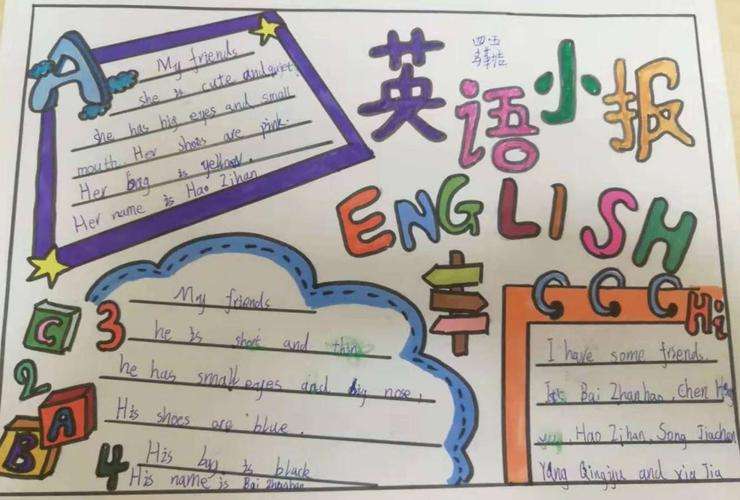 A
My friends
she is cute and quiet.
she has big eyes and small
mouth. Her shoes are pink.
Her bag is yellow.
Her name is Hao Zihan
四五
英语小报
ENGLISH
C
3
2
A
B
4
My friends
he is short and thin
he has small eyes and big nose.
His shoes are blue.
His bag is black
His name is Bai Zhanhao
Hi
I have some friends.
Bai Zhanhao, Chen
Hao Zihan, Song Jiachen
Yang Qingyu and xia Jia